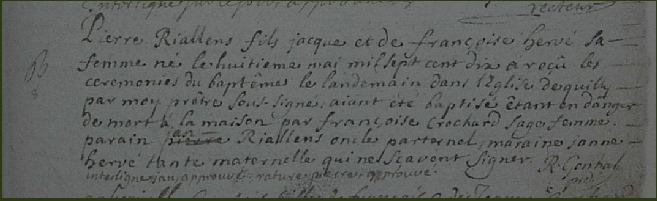 recteur
B
Pierre Riallens fils jacque et de françoise hervé sa
femme né le huitieme mai mil sept cent dix a reçu les
ceremonies du baptême le landemain dans l'Eglise de quilly
par moy prêtre sous-signé, aiant été baptisé êtant en danger
de mort à la maison par françoise Crochard sage femme.
parain jan pierre Riallens oncle parternel, maraine janne
hervé tante maternelle qui ne sçavent signer. R. Gonhal
interligne jan approuvé, rature pierre approuvé.